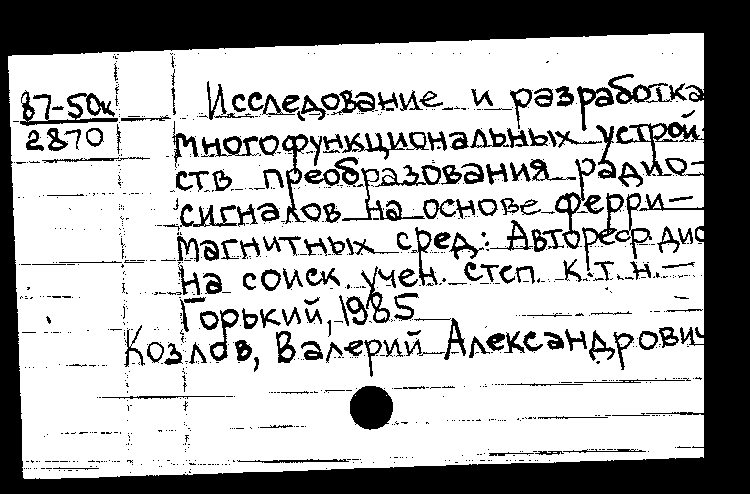 87-50к
2870
Исследование и разработка
многофункциональных устрой-
ств преобразования радио-
сигналов на основе ферри-
магнитных сред: Автореф. дис
на соиск. учен. степ. к.т.н.—
Горький, 1985
Козлов, Валерий Александрович